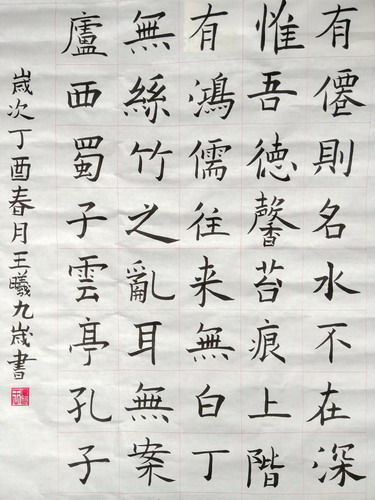 有僊則名水不在深
惟吾徳馨苔痕上階
有鴻儒往来無白丁
無絲竹之亂耳無案
廬西蜀子雲亭孔子
歲次丁酉春月王曦九歲書